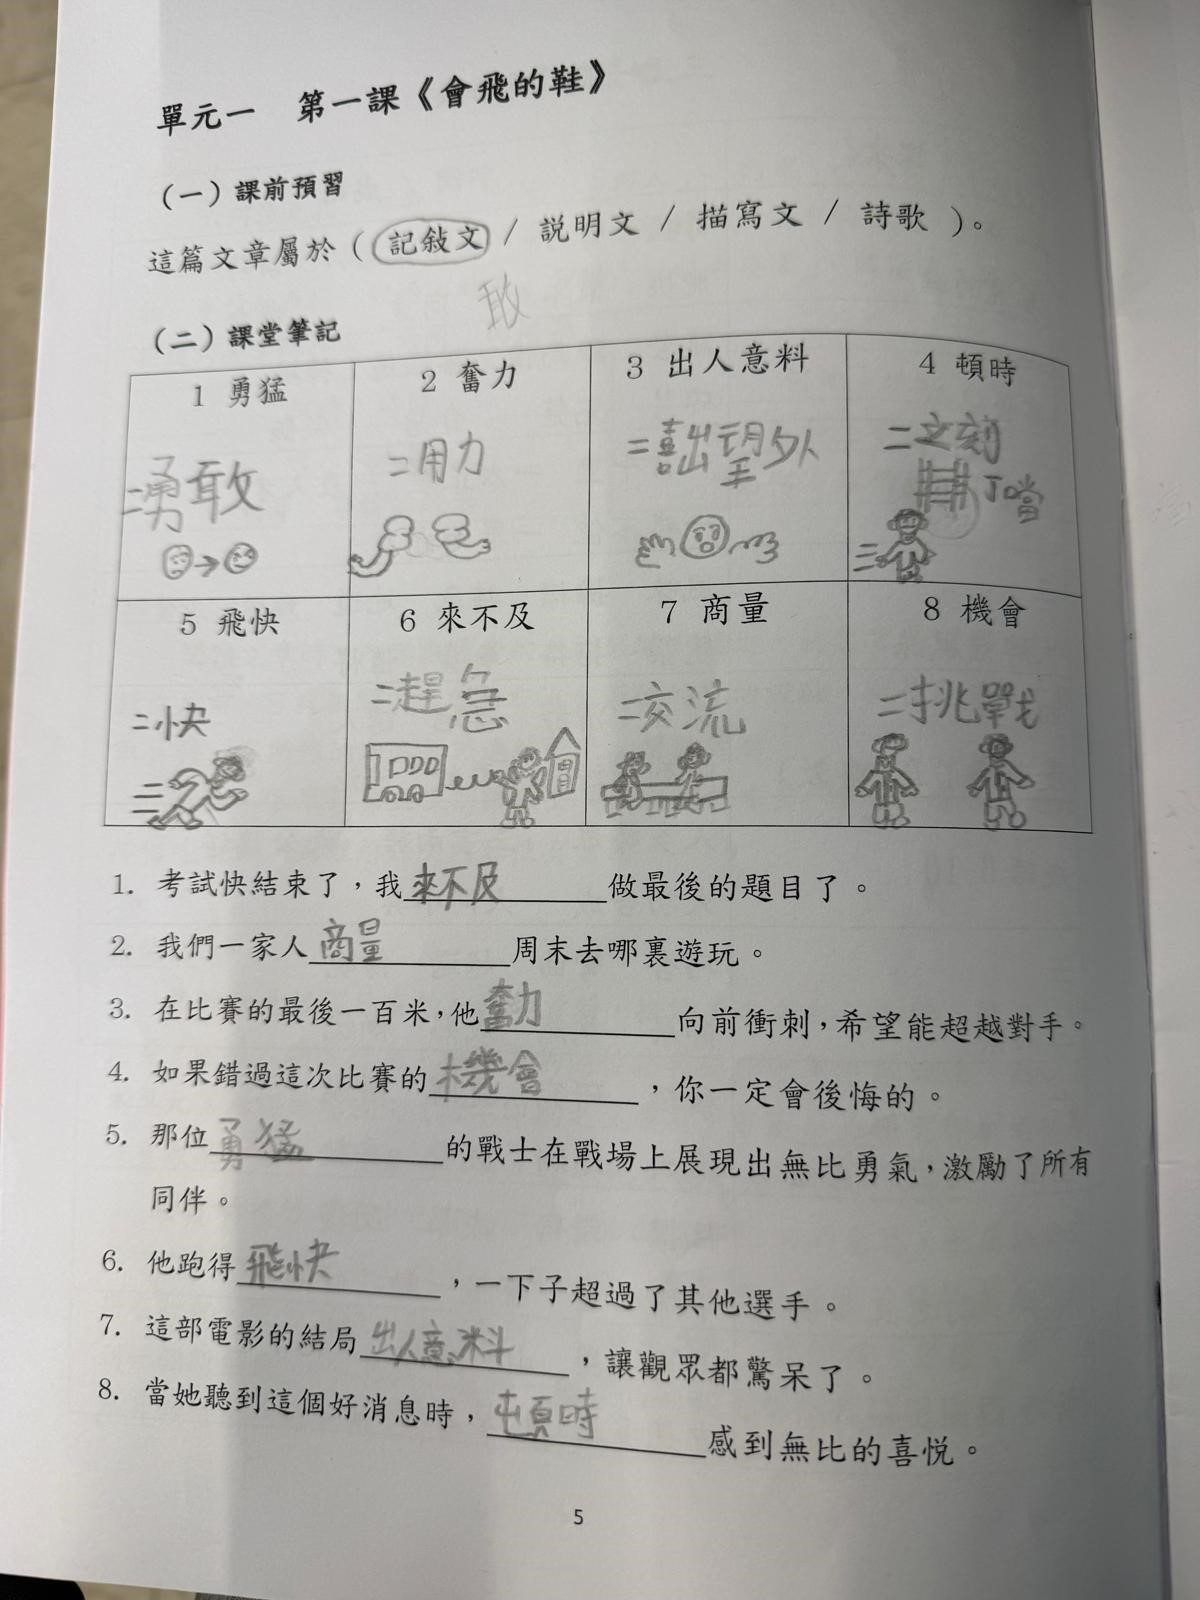 單元一 第一課《會飛的鞋》
(一)課前預習
這篇文章屬於(記敍文 / 説明文 / 描寫文 / 詩歌 )。
敢
(二)課堂筆記
1 勇猛
=勇敢
2 奮力
=用力
3 出人意料
=喜出望外
4 頓時
=之刻
丁噹
5 飛快
=快
6 來不及
=趕急
7 商量
=交流
8 機會
=挑戰
1. 考試快結束了，我來不及做最後的題目了。
2. 我們一家人商量周末去哪裏遊玩。
3. 在比賽的最後一百米，他奮力向前衝刺，希望能超越對手。
4. 如果錯過這次比賽的機會，你一定會後悔的。
5. 那位勇猛的戰士在戰場上展現出無比勇氣，激勵了所有
同伴。
6. 他跑得飛快，一下子超過了其他選手。
7. 這部電影的結局出人意料，讓觀眾都驚呆了。
8. 當她聽到這個好消息時，頓時感到無比的喜悅。
5